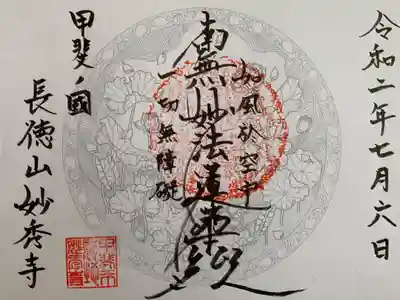 令和二年七月六日
如風於空中
南無妙法蓮華経
一切無障礙
甲斐ノ國
長徳山妙秀寺